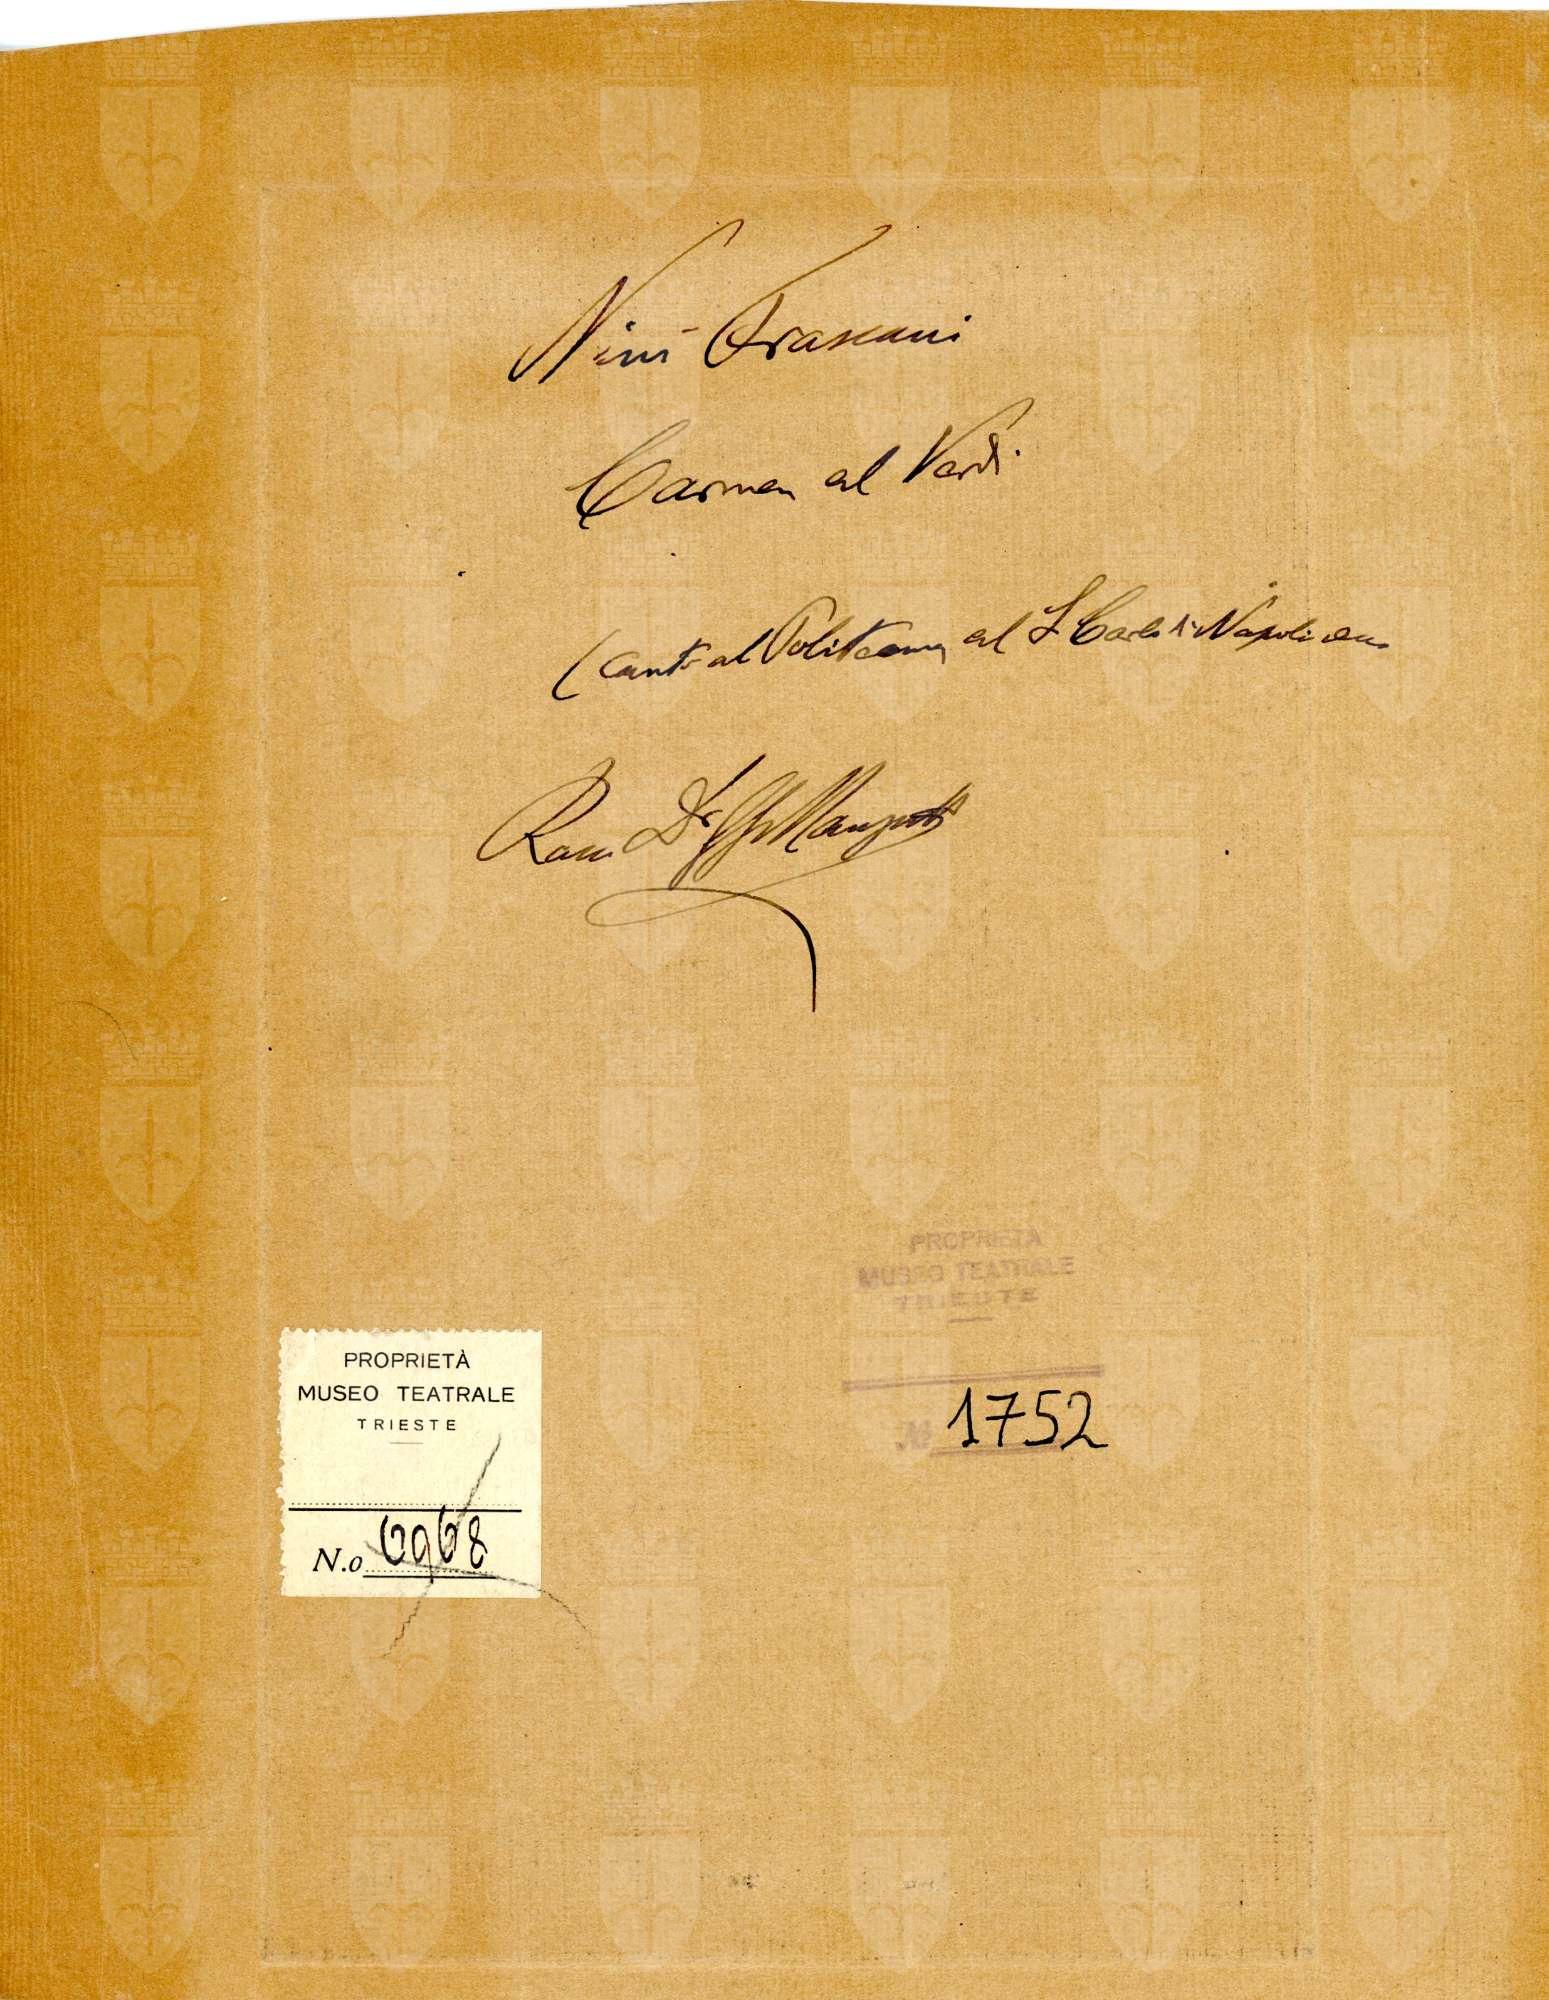 Nini Frascani
Carmen al Verdi
(cantò al Politeama, al S. Carlo di Napoli ecc.
Racc. Dr. G. Manzutto
PROPRIETÀ
MUSEO TEATRALE
TRIESTE
PROPRIETÀ
MUSEO TEATRALE
TRIESTE
N.o 6968
№ 1752